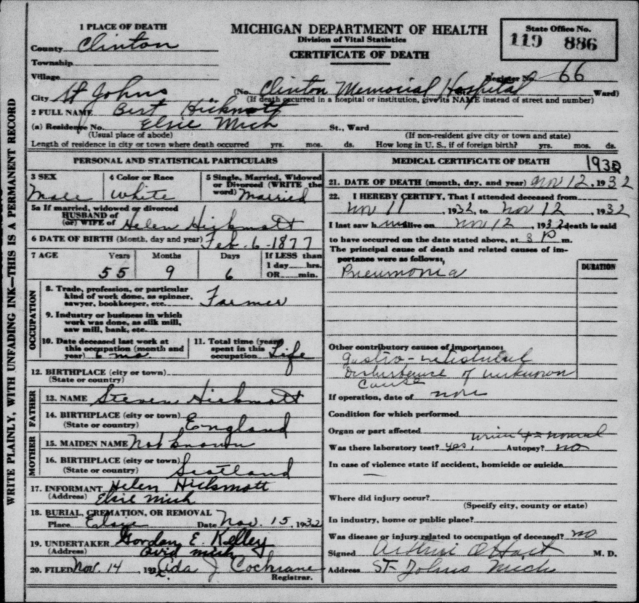 1 PLACE OF DEATH
County Clinton
Township
Village
City St Johns
MICHIGAN DEPARTMENT OF HEALTH
Division of Vital Statistics
CERTIFICATE OF DEATH
State Office No.
119 886
Register No. 66
(No. Clinton Memorial Hospital Ward)
(If death occurred in a hospital or institution, give its NAME instead of street and number)
2 FULL NAME Burt Hickmott
(a) Residence No. Elsie Mich St., Ward
(Usual place of abode) (If non-resident give city or town and state)
Length of residence in city or town where death occurred yrs. mos. ds. How long in U. S., if of foreign birth? yrs. mos. ds.
PERSONAL AND STATISTICAL PARTICULARS
3 SEX
Male
4 Color or Race
White
5 Single, Married, Widowed or Divorced (WRITE the word)
Married
5a If married, widowed or divorced
HUSBAND of
(or) WIFE of Helen Hickmott
6 DATE OF BIRTH (Month, day and year) Feb. 6-1877
7 AGE Years Months Days If LESS than
1 day hrs.
OR min.
55 9 6
OCCUPATION
8. Trade, profession, or particular
kind of work done, as spinner,
sawyer, bookkeeper, etc. Farmer
9. Industry or business in which
work was done, as silk mill,
saw mill, bank, etc.
10. Date deceased last work at
this occupation (month and
year) 6 mo
11. Total time (years)
spent in this
occupation Life
12. BIRTHPLACE (city or town)
(State or country)
FATHER
13. NAME Steven Hickmott
14. BIRTHPLACE (city or town)
(State or country) England
MOTHER
15. MAIDEN NAME Not known
16. BIRTHPLACE (city or town)
(State or country) Scotland
17. INFORMANT Helen Hickmott
(Address) Elsie Mich
18. BURIAL, CREMATION, OR REMOVAL
Place Elsie Date Nov. 15, 1932
19. UNDERTAKER Gordon E. Kelley
(Address) Ovid Mich
20. FILED Nov. 14, 1932 Ada J Cochrane
Registrar.
MEDICAL CERTIFICATE OF DEATH
1932
21. DATE OF DEATH (month, day, and year) Nov 12, 1932
22. I HEREBY CERTIFY, That I attended deceased from
Nov 11, 1932 to Nov 12, 1932
I last saw him alive on Nov 12 1932 death is said
to have occurred on the date stated above, at 8 P m.
The principal cause of death and related causes of importance were as follows,
DURATION
Pneumonia
Other contributory causes of importance:
Gastro-intestinal
disturbance of unknown
cause
If operation, date of none
Condition for which performed
Organ or part affected
Was there laboratory test? yes, Autopsy? no
In case of violence state if accident, homicide or suicide
Where did injury occur?
(Specify city, county or state)
In industry, home or public place?
Was disease or injury related to occupation of deceased? no
Signed M. D.
Address St Johns Mich
WRITE PLAINLY, WITH UNFADING INK—THIS IS A PERMANENT RECORD